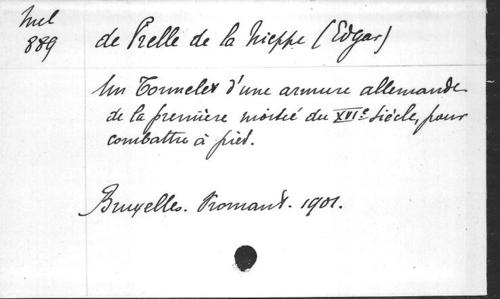 Mel
889
de Prelle de la Nieppe (Edgar)
Un Tonnelet d'une armure allemande
de la première moitié du XVIe siècle, pour
combattre à pied.
Bruxelles. Vromant. 1901.